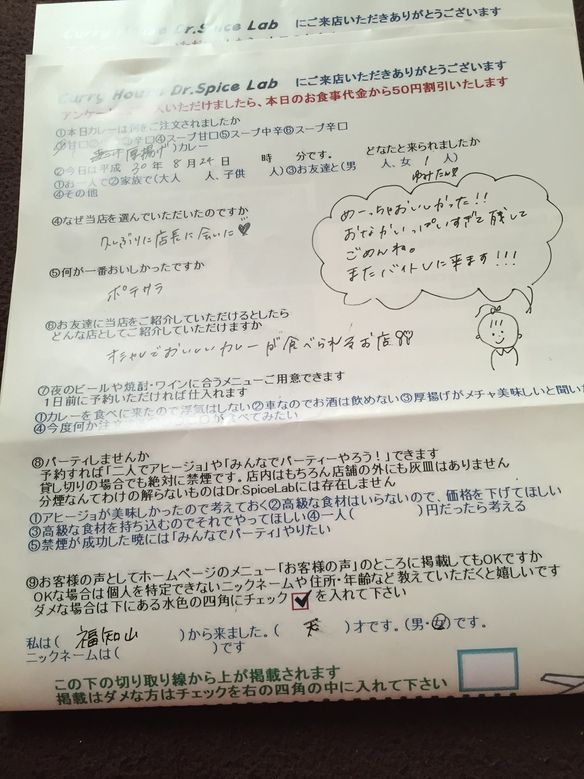 Dr.Spice Lab にご来店いただきありがとうございます
Curry House Dr.Spice Lab にご来店いただきありがとうございます
いただけましたら、本日のお食事代金から50円割引いたします
①本日カレーは何をご注文されましたか
辛口④スープ甘口⑤スープ中辛⑥スープ辛口
厚揚げ)カレー
②今日は平成 30年 8月 24日 時 分です。 どなたと来られましたか
①お一人で②家族で(大人 人、子供 人)③お友達と(男 人、女 1 人)
④その他
ゆみたん
④なぜ当店を選んでいただいたのですか
久しぶりに店長に会いに♥
⑤何が一番おいしかったですか
ポテサラ
めーっちゃおいしかった!!
おなかいっぱいすぎて残して
ごめんね。
またバイトしに来ます!!!
⑥お友達に当店をご紹介していただけるとしたら
どんな店としてご紹介していただけますか
オシャレでおいしいカレーが食べられるお店♡♡
⑦夜のビールや焼酎・ワインに合うメニューご用意できます
1日前に予約いただければ仕入れます
①カレーを食べに来たので浮気はしない②車なのでお酒は飲めない③厚揚げがメチャ美味しいと聞いた
④今度何か注文 食べてみたい
⑧パーティしませんか
予約すれば「二人でアヒージョ」や「みんなでパーティーやろう!」できます
貸し切りの場合でも絶対に禁煙です。店内はもちろん店舗の外にも灰皿はありません
分煙なんてわけの解らないものはDr.SpiceLabには存在しません
①アヒージョが美味しかったので考えておく②高級な食材はいらないので、価格を下げてほしい
③高級な食材を持ち込むのでそれでやってほしい④一人( )円だったら考える
⑤禁煙が成功した暁には「みんなでパーティ」やりたい
⑨お客様の声としてホームページのメニュー「お客様の声」のところに掲載してもOKですか
OKな場合は個人を特定できないニックネームや住所・年齢など教えていただくと嬉しいです
ダメな場合は下にある水色の四角にチェック を入れて下さい
私は( 福知山 )から来ました。( )才です。(男・女)です。
ニックネームは( )です
この下の切り取り線から上が掲載されます
掲載はダメな方はチェックを右の四角の中に入れて下さい